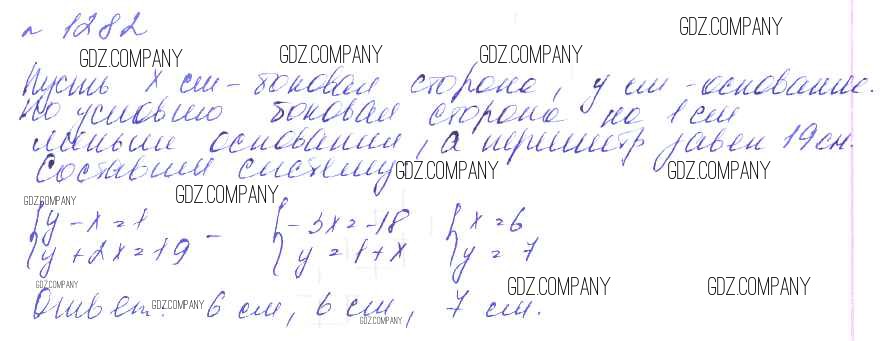 № 1282
GDZ.COMPANY
GDZ.COMPANY GDZ.COMPANY GDZ.COMPANY GDZ.COMPANY
Пусть x см - боковая сторона, y см - основание.
По условию боковая сторона на 1 см
меньше основания, а периметр равен 19 см.
Составим систему
GDZ.COMPANY GDZ.COMPANY
GDZ.COMPANY GDZ.COMPANY
{y - x = 1 - {-3x = -18 {x = 6
{y + 2x = 19 {y = 1 + x {y = 7
GDZ.COMPANY GDZ.COMPANY
Ответ: 6 см, 6 см, 7 см.
GDZ.COMPANY GDZ.COMPANY